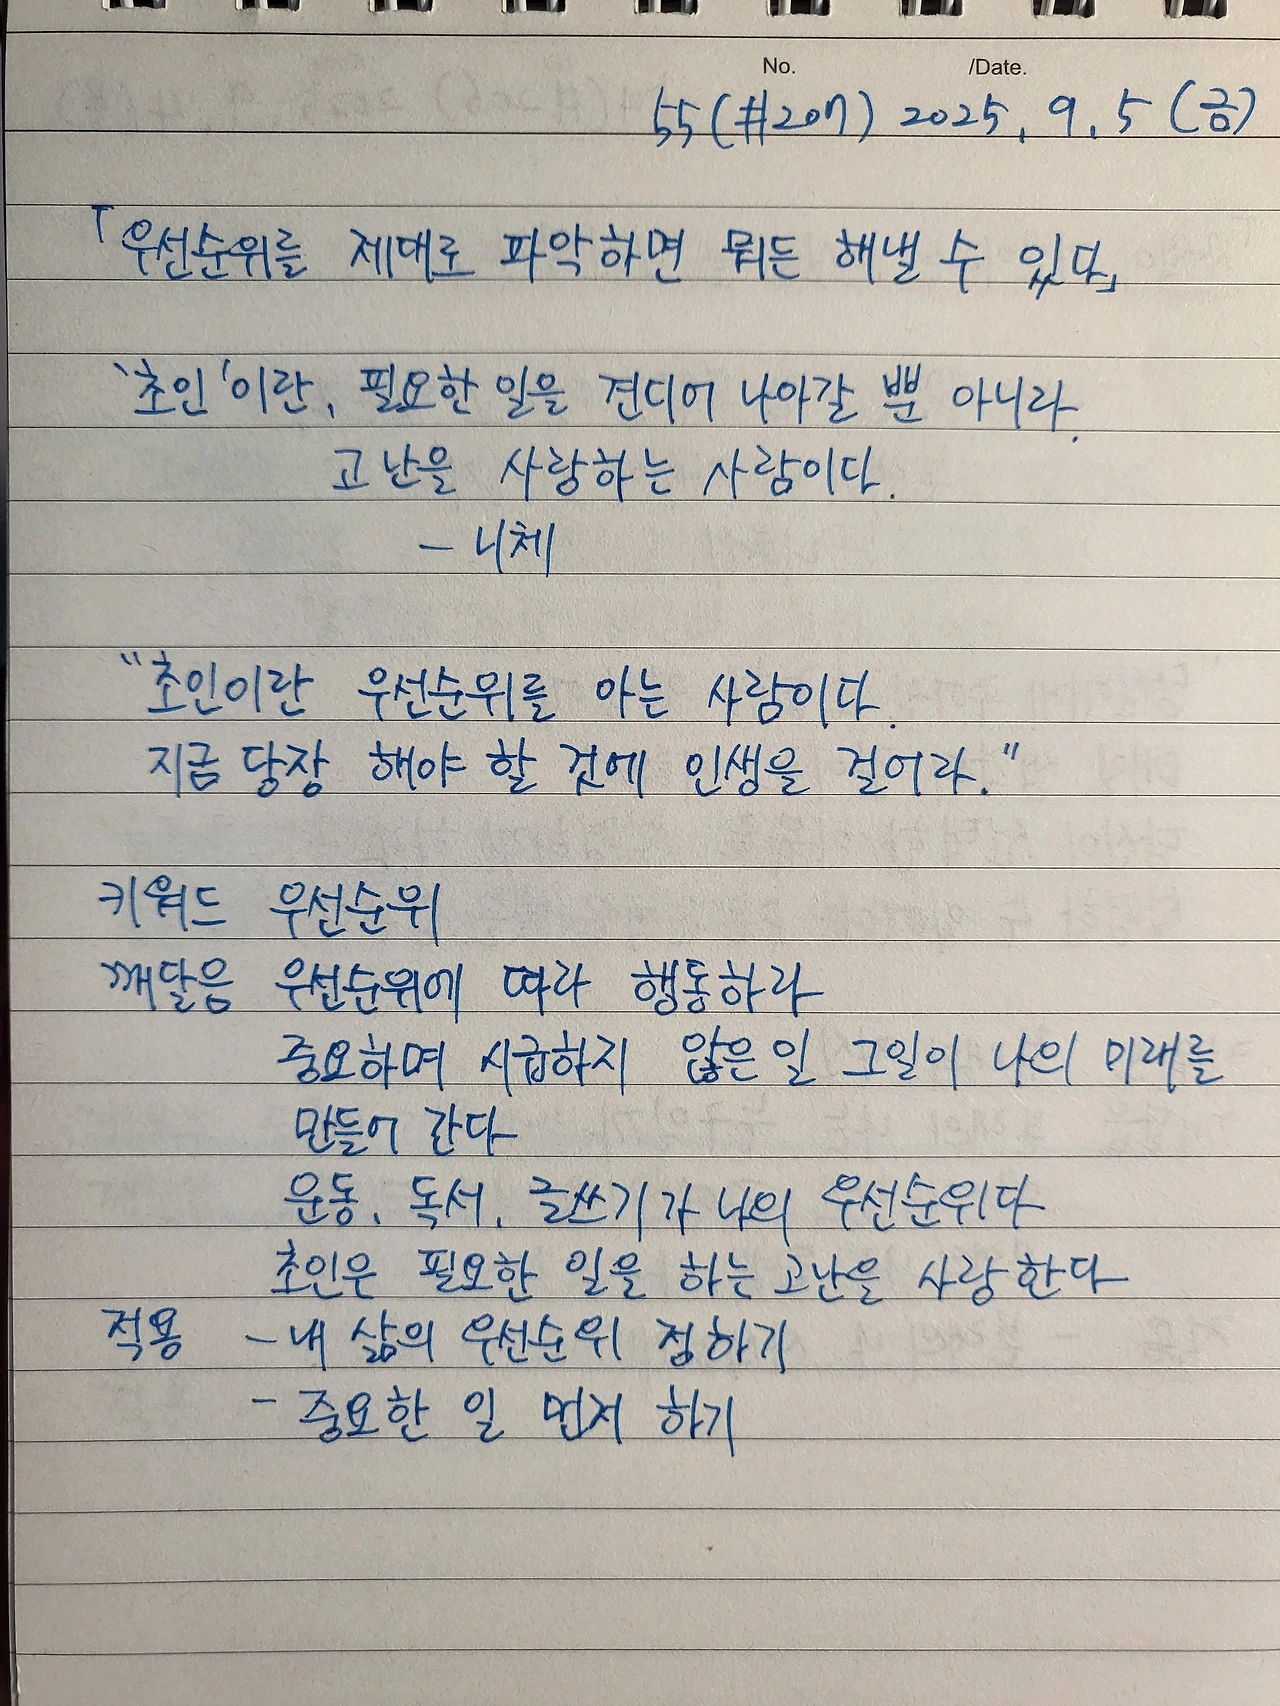 No. /Date.
55(#207) 2025. 9. 5 (금)
「우선순위를 제대로 파악하면 뭐든 해낼 수 있다」
'초인'이란, 필요한 일을 견디어 나아갈 뿐 아니라,
고난을 사랑하는 사람이다.
- 니체
"초인이란 우선순위를 아는 사람이다.
지금 당장 해야 할 것에 인생을 걸어라."
키워드 우선순위
깨달음 우선순위에 따라 행동하라
중요하며 시급하지 않은 일 그일이 나의 미래를
만들어 간다
운동, 독서, 글쓰기가 나의 우선순위다
초인은 필요한 일을 하는 고난을 사랑한다
적용 - 내 삶의 우선순위 정하기
- 중요한 일 먼저 하기